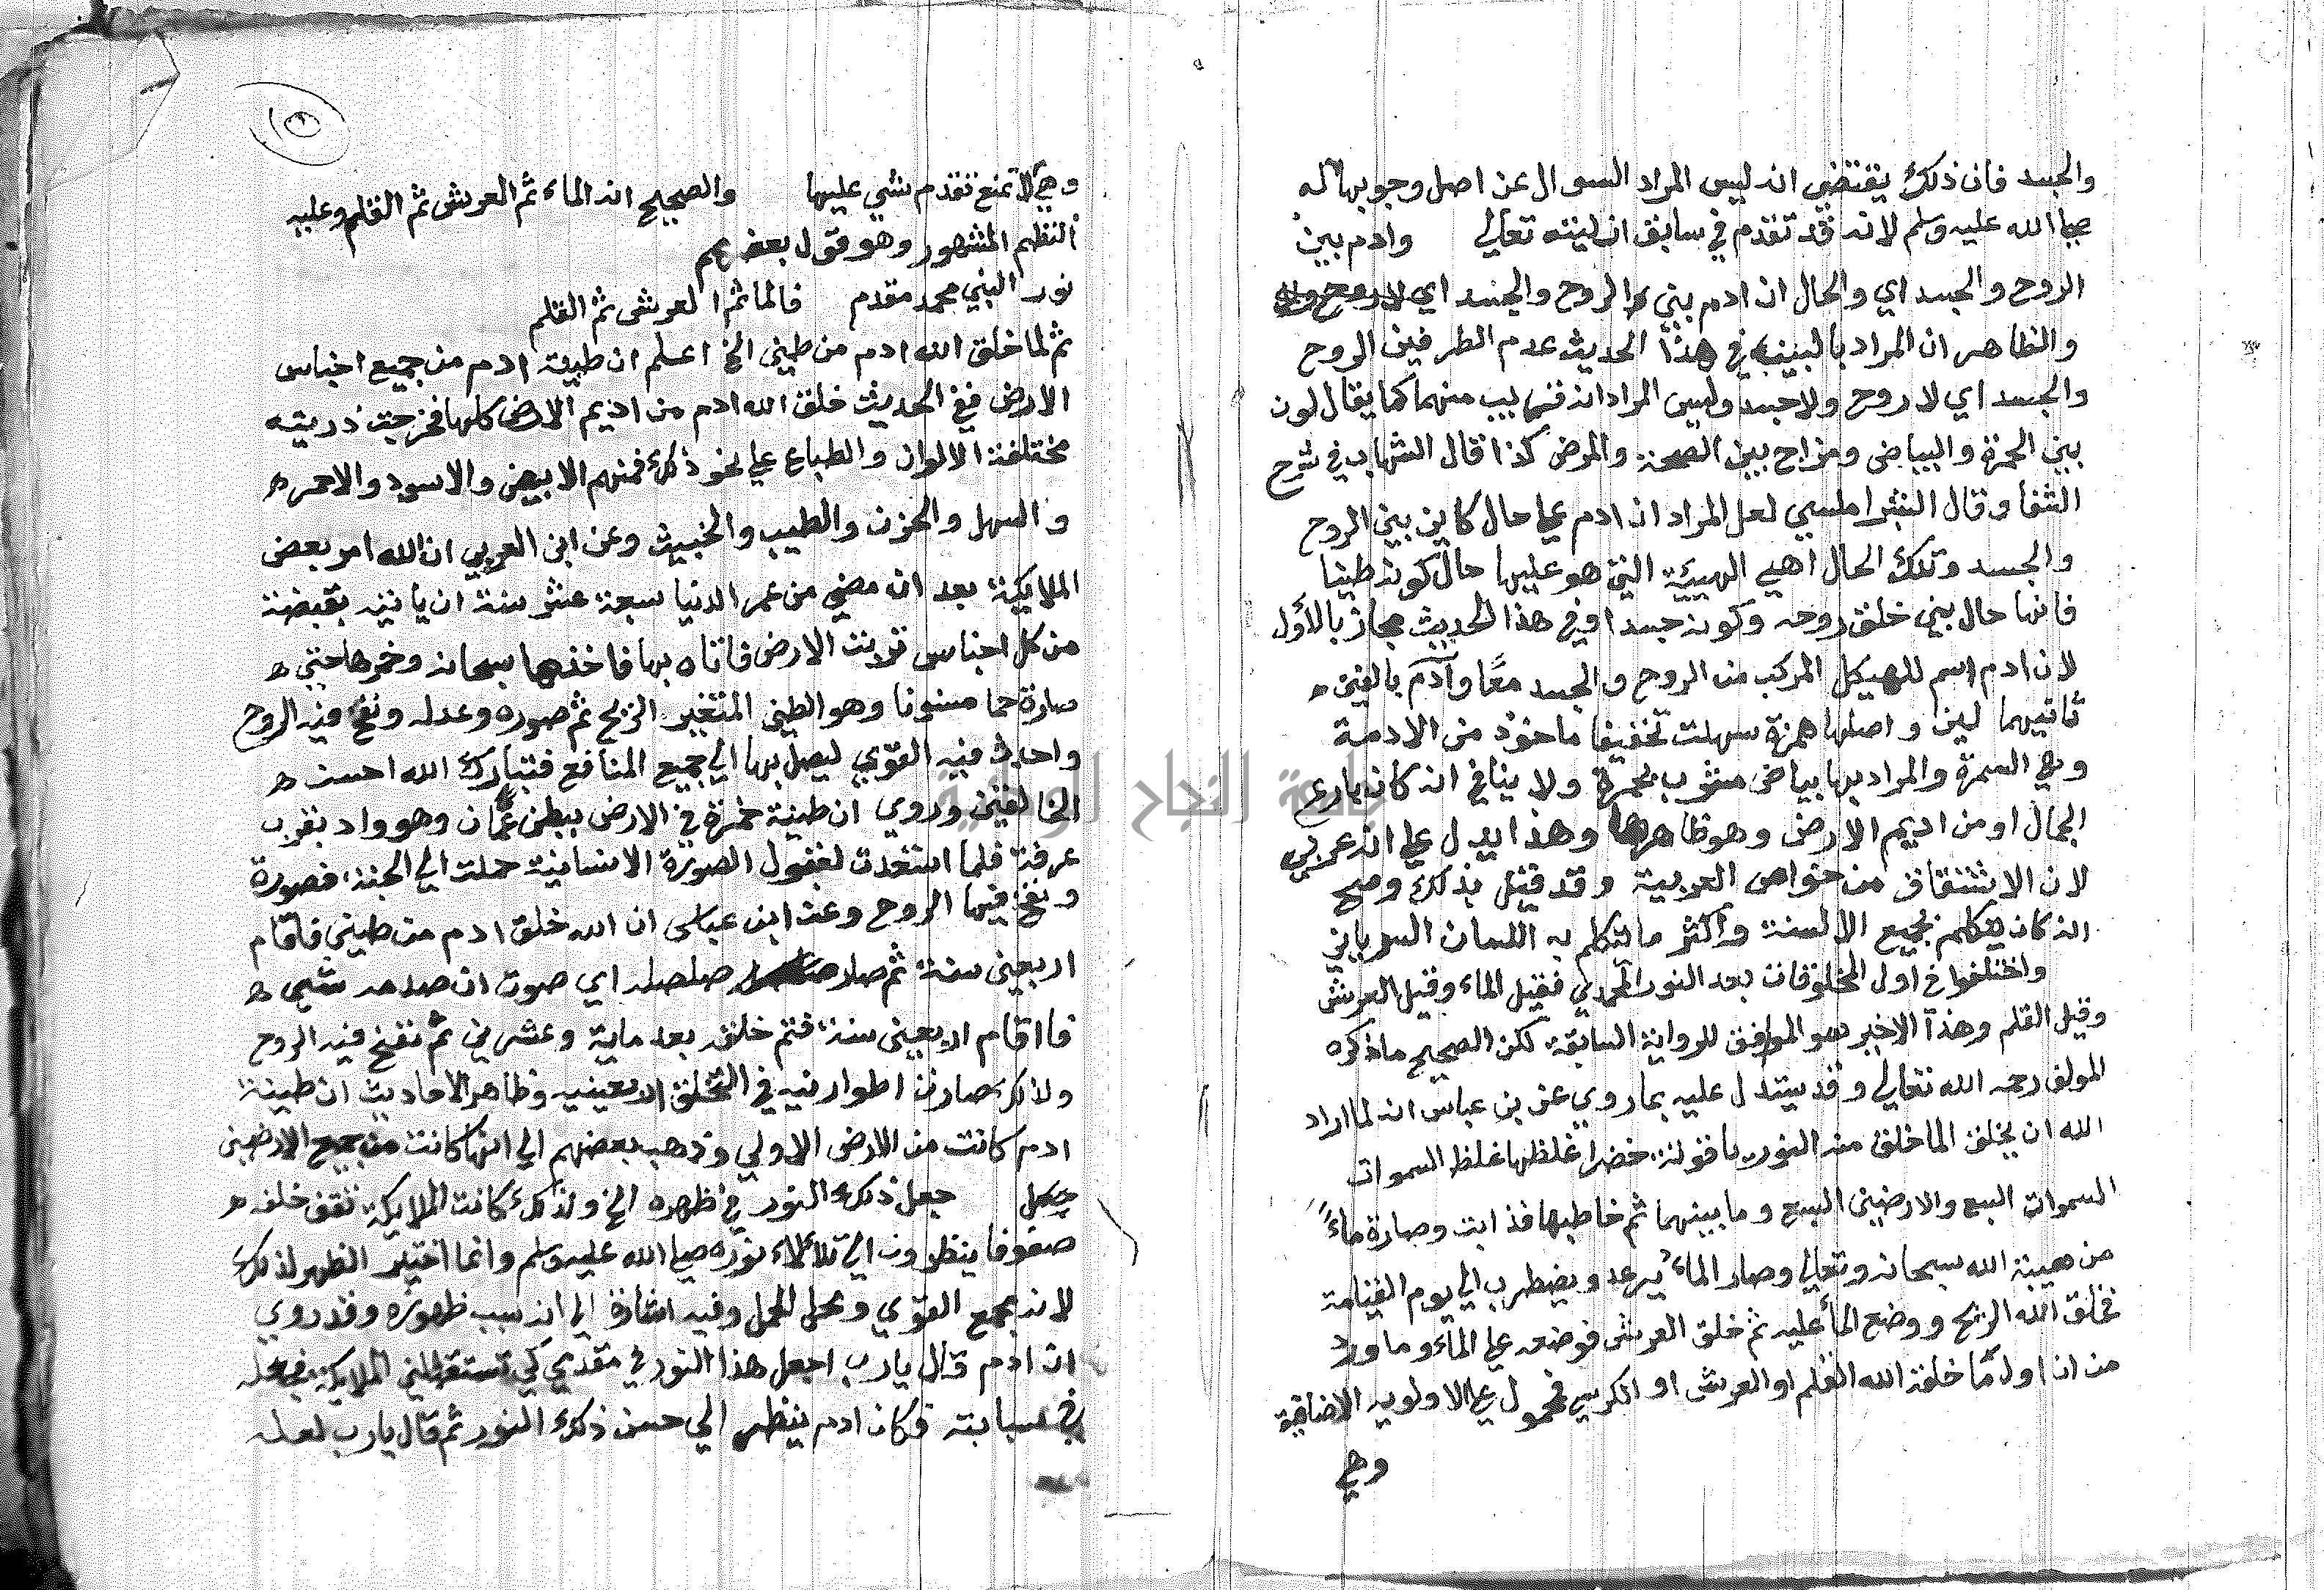 والجسد فان ذلك يقتضي انه ليس المراد السوال عن اصل وجوبها له
صلى الله عليه وسلم لانه قد تقدم في سابق ان لينته تعالي وادم بين
الروح والجسد اي والحال ان ادم بين الروح والجسد اي لا روح ولا
والظاهر ان المراد بالبينية في هذا الحديث عدم الطرفين الروح
والجسد اي لا روح ولا جسد وليس المراد انه قريب منهما كما يقال لون
بين الحمرة والبياض ومزاج بين الصحة والمرض كذا قال الشهاب في شرح
الشفا وقال الشبراملسي لعل المراد ان ادم علي حال كاين بين الروح
والجسد وتلك الحال هي الهيئة التي هو عليها حال كونه طينا
فانها حال بين خلق روحه وكونه جسدا وفي هذا الحديث مجاز بالأول
لان ادم اسم للهيكل المركب من الروح والجسد معًا وآدم بالفين
ثانيهما لين واصلها همزة سهلت تخفيفا ماخوذ من الادمة
وهي السمرة والمراد بها بياض مشرب بحمرة ولا ينافي انه كان بارع
الجمال او من اديم الارض وهو ظاهرها وهذا يدل علي انه عربي
لان الاشتقاق من خواص العربية وقد قيل بذلك وصح
انه كان يتكلم بجميع الالسنة وأكثر ما يتكلم به اللسان السرياني
واختلفوا في اول المخلوقات بعد النور المحمدي فقيل الماء وقيل العرش
وقيل القلم وهذا الاخير هو الموافق للرواية السابقة لكن الصحيح ما ذكره
المولف رحمه الله تعالي وقد يستدل عليه بما روي عن بن عباس انه لما اراد
الله ان يخلق الما خلق من النور ياقوتة خضرا غلظها غلظ السموات
السموات السبع والارضين السبع وما بينهما ثم خاطبها فذابت وصارة ماءً
من هيبة الله سبحانه وتعالي وصار الماء يرعد ويضطرب الي يوم القيامة
فخلق الله الريح ووضع الماء عليه ثم خلق العرش فوضعه علي الماء وما ورد
من ان اول ما خلق الله القلم او العرش او الكرسي فمحمول علي الاولوية الاضافية
وهي
١٥
وهي لا تمنع تقدم شي عليها والصحيح انه الماء ثم العرش ثم القلم وعليه
النظم المشهور وهو قول بعضهم
نور النبي محمد مقدم فالما ثم العرش ثم القلم
ثم لما خلق الله ادم من طين الخ اعلم ان طينة ادم من جميع اجناس
الارض ففي الحديث خلق الله ادم من اديم الارض كلها فخرجت ذريته
مختلفة الالوان والطباع علي نحو ذلك فمنهم الابيض والاسود والاحمر
والسهل والحزن والطيب والخبيث وعن ابن العربي ان الله امر بعض
الملايكة بعد ان مضي من عمر الدنيا سبعة عشر سنة ان ياتيه بقبضة
من كل اجناس تربت الارض فاتاه بها فاخذها سبحانه وخمرها حتي
صارة حما مسنونا وهو الطين المتغير الريح ثم صوره وعدله ونفخ فيه الروح
واحدث فيه القوي ليصل بها الي جميع المنافع فتبارك الله احسن
الخالقين وروي ان طينة خمرة في الارض ببطن نعمان وهو واد بقرب
عرفة فلما استعدت لقبول الصورة الانسانية حملت الي الجنة فصورة
ونفخ فيها الروح وعن ابن عباس ان الله خلق ادم من طين فاقام
اربعين سنة ثم صار صلصله اي صوت ان صدمه شي
فاقام اربعين سنة فتم خلقه بعد ماية وعشرين ثم نفخ فيه الروح
ولذلك صارت اطوار بنيه في التخلق اربعينيه وظاهر الاحاديث ان طينة
ادم كانت من الارض الاولي وذهب بعضهم الي انها كانت من جميع الارضين
جعل ذلك النور في ظهره الخ ولذلك كانت الملايكة تقف خلفه
صفوفا ينظرون الي تلألاء نوره صلي الله عليه وسلم وانما اختير الظهر لذلك
لانه مجمع القوي ومحل الحمل وفيه اشارة الي انه سبب ظهوره وقد روي
ان ادم قال يارب اجعل هذا النور في مقدمي كي تستقبلني الملايكة فجعله
في سبابته فكان ادم ينظر الي حسن ذلك النور ثم قال يارب لعله
جامعة النجاح الوطنية